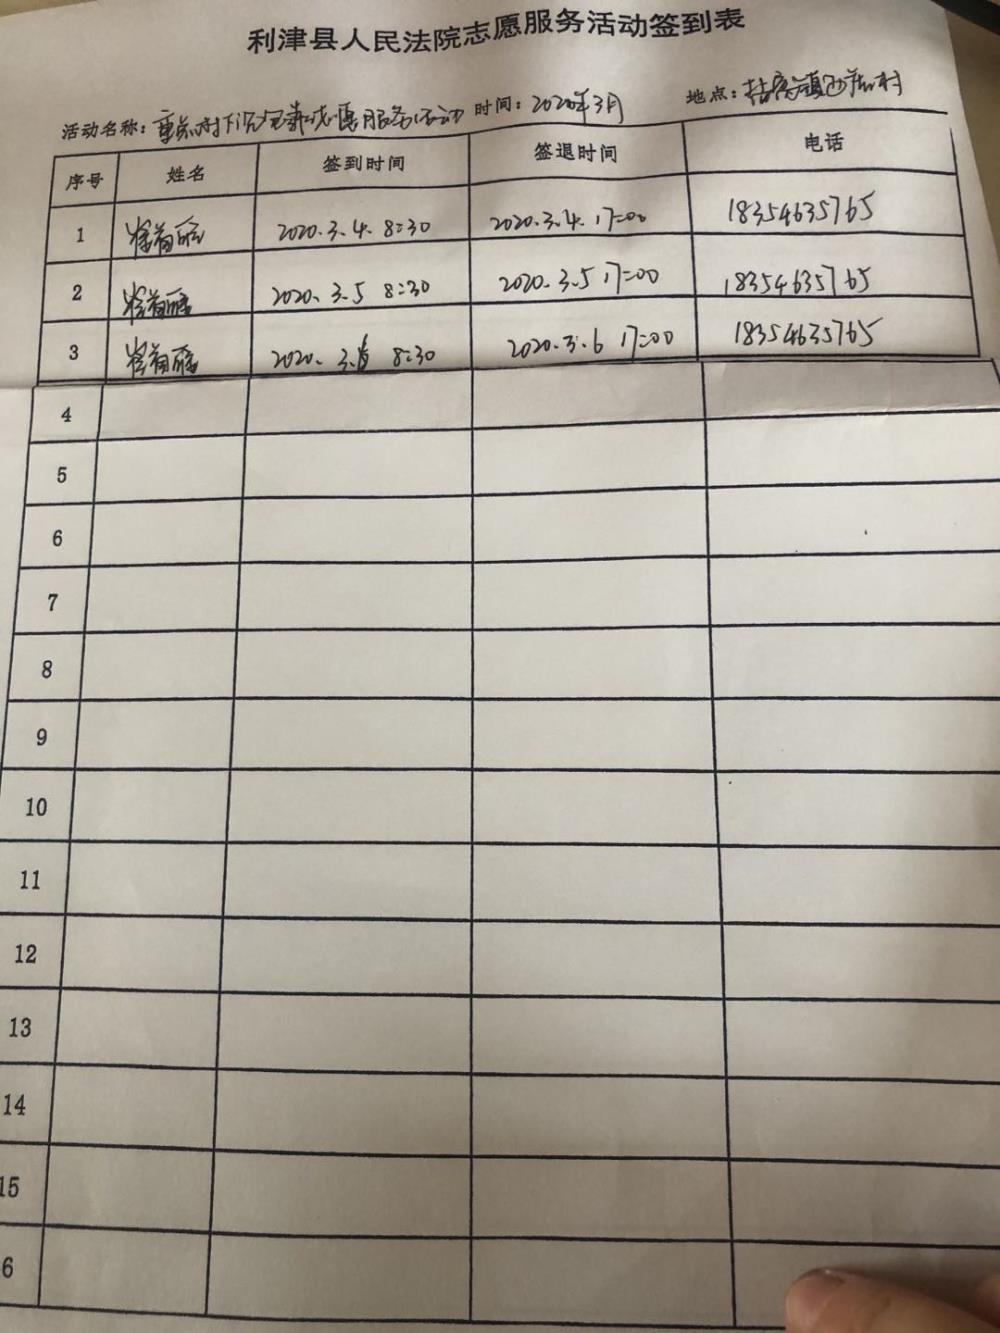 利津县人民法院志愿服务活动签到表
活动名称：重点村下沉 志愿服务活动 时间：2020年3月 地点： 镇 村
序号 姓名 签到时间 签退时间 电话
1 2020.3.4. 8:30 2020.3.4. 17:00 18354635765
2 2020.3.5 8:30 2020.3.5 17:00 18354635765
3 2020.3.6 8:30 2020.3.6 17:00 18354635765
4
5
6
7
8
9
10
11
12
13
14
15
6